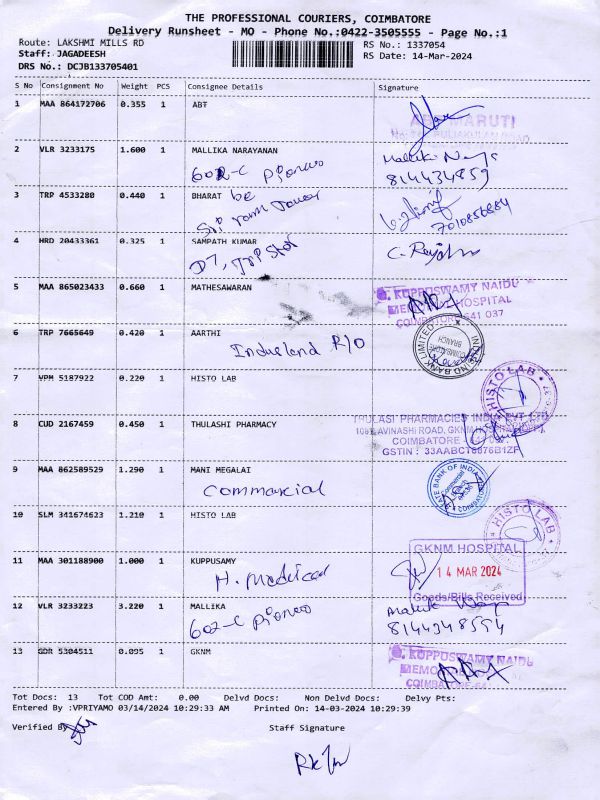 THE PROFESSIONAL COURIERS, COIMBATORE
Delivery Runsheet - MO - Phone No.:0422-3505555 - Page No.:1
Route: LAKSHMI MILLS RD
RS No.: 1337054
Staff: JAGADEESH
RS Date: 14-Mar-2024
DRS No.: DCJB133705401
S No Consignment No Weight PCS Consignee Details Signature
1 MAA 864172706 0.355 1 ABT
MARUTI
2 VLR 3233175 1.600 1 MALLIKA NARAYANAN
602-C
3 TRP 4533280 0.440 1 BHARAT be
7010856884
4 HRD 20433361 0.325 1 SAMPATH KUMAR
5 MAA 865023433 0.660 1 MATHESAWARAN
G. KUPPUSWAMY NAIDU
MEMORIAL HOSPITAL
COIMBATORE-641 037
6 TRP 7665649 0.420 1 AARTHI
Indusland R/O
INDUSIND BANK LIMITED
COIMBATORE
BRANCH
7 VPM 5187922 0.220 1 HISTO LAB
HISTO LAB
8 CUD 2167459 0.450 1 THULASHI PHARMACY
THULASI PHARMACIES INDIA PVT LTD
AVINASHI ROAD, GKNM
COIMBATORE
GSTIN : 33AABCT8876B1ZF
9 MAA 862589529 1.290 1 MANI MEGALAI
Commercial
STATE BANK OF INDIA
10 SLM 341674623 1.210 1 HISTO LAB
HISTO LAB
11 MAA 301188900 1.000 1 KUPPUSAMY
H. Medical
GKNM HOSPITAL
14 MAR 2024
Goods/Bills Received
12 VLR 3233223 3.220 1 MALLIKA
602-C
8144348594
13 GDR 5304511 0.095 1 GKNM
G. KUPPUSWAMY NAIDU
Tot Docs: 13 Tot COD Amt: 0.00 Delvd Docs: Non Delvd Docs: Delvy Pts:
Entered By :VPRIYAMO 03/14/2024 10:29:33 AM Printed On: 14-03-2024 10:29:39
Verified By
Staff Signature